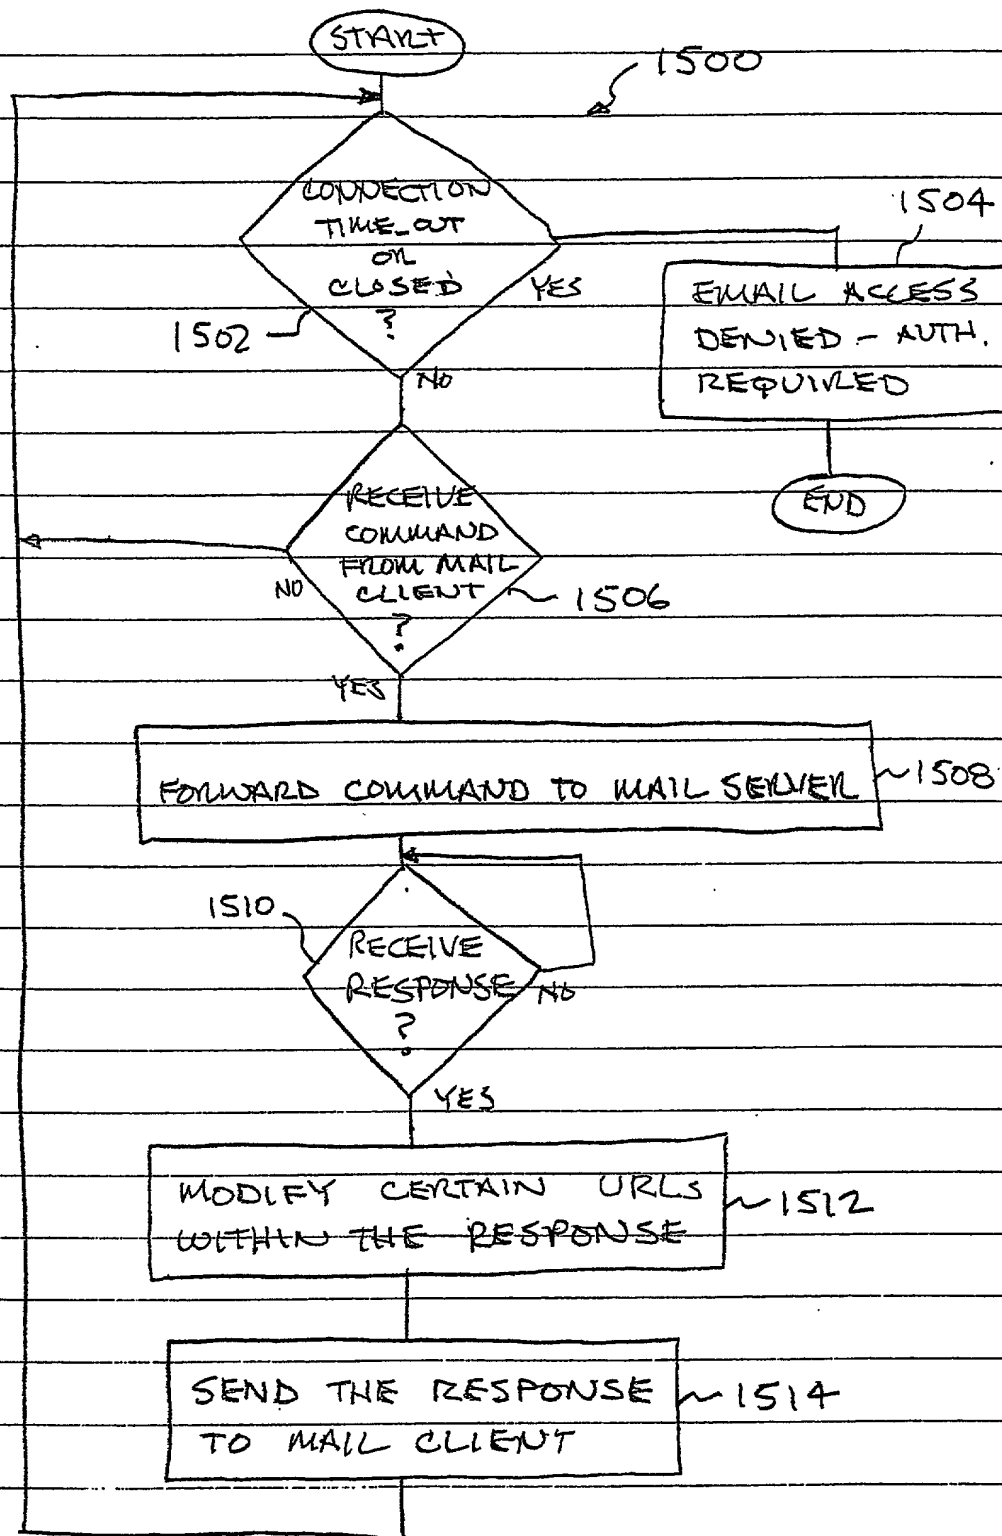 START
1500
CONNECTION
TIME-OUT
OR
CLOSED
?
1502
YES
NO
1504
EMAIL ACCESS
DENIED - AUTH.
REQUIRED
END
RECEIVE
COMMAND
FROM MAIL
CLIENT
?
1506
NO
YES
FORWARD COMMAND TO MAIL SERVER
1508
1510
RECEIVE
RESPONSE
?
NO
YES
MODIFY CERTAIN URLs
WITHIN THE RESPONSE
1512
SEND THE RESPONSE
TO MAIL CLIENT
1514